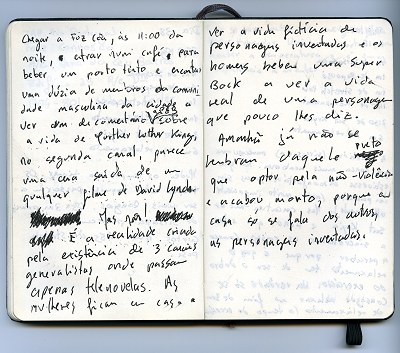 Chegar a Foz Côa, às 11:00 da
noite, entrar num café, para
beber um porto tinto e encontrar
uma dúzia de membros da comuni
dade masculina da cidade a
ver um documentário sobre
a vida de Luther King,
no segundo canal, parece
uma cena saída de um
qualquer filme do David Lynch.
Mas não!
É a realidade criada
pela existência de 3 canais
generalistas onde passam
apenas telenovelas. As
mulheres ficam em casa a
ver a vida fictícia de
personagens inventadas e os
homens bebem uma Super
Bock a ver a vida
real de uma personagem
que pouco lhes diz.
Amanhã já não se
lembram daquele preto
que optou pela não-violência
e acabou morto, porque em
casa só se fala das outras,
as personagens inventadas.